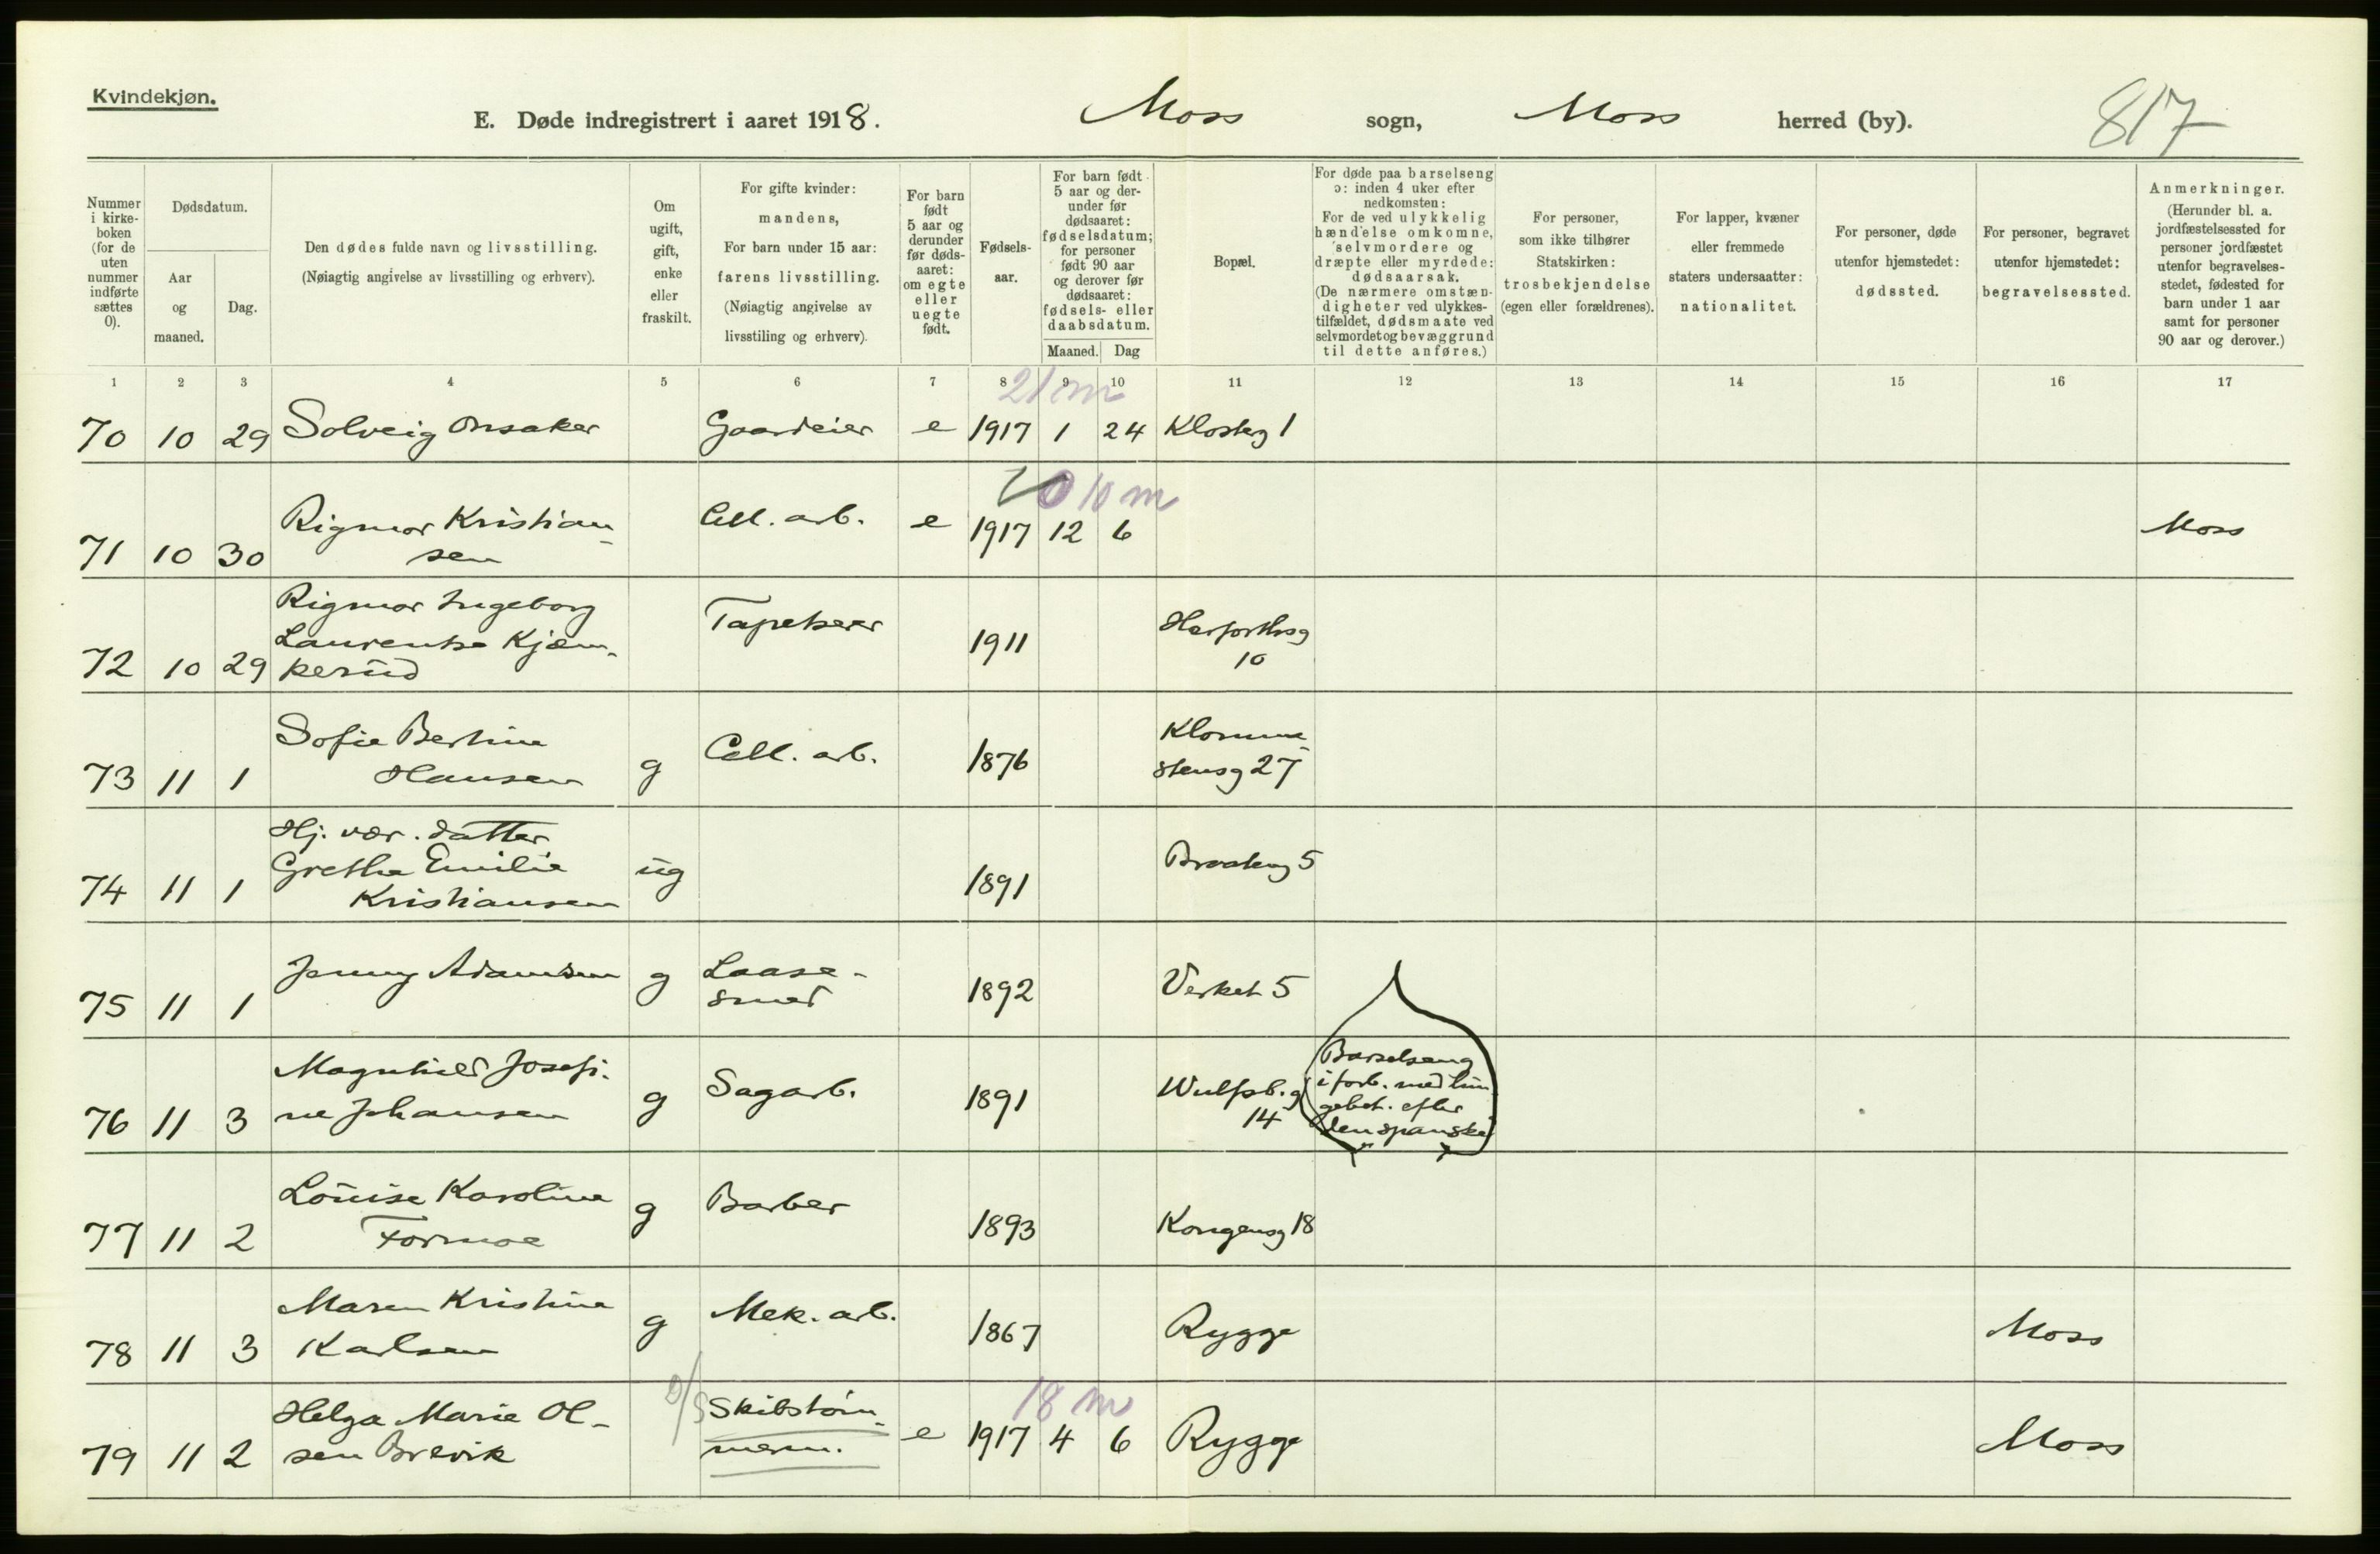 Kvindekjøn.
E. Døde indregistrert i aaret 1918. Moss sogn, Moss herred (by). 817
Nummer i kirke-boken (for de uten nummer indførte sættes 0).
Dødsdatum.
Aar og maaned.
Dag.
Den dødes fulde navn og livsstilling.
(Nøiagtig angivelse av livsstilling og erhverv).
Om ugift, gift, enke eller fraskilt.
For gifte kvinder:
mandens,
For barn under 15 aar:
farens livsstilling.
(Nøiagtig angivelse av
livsstiling og erhverv).
For barn født 5 aar og derunder før døds-aaret: om egte eller uegte født.
Fødsels-aar.
For barn født 5 aar og der-under før dødsaaret: fødselsdatum; for personer født 90 aar og derover før dødsaaret: fødsels- eller daabsdatum.
Maaned. Dag
Bopæl.
For døde paa barselseng
ɔ: inden 4 uker efter
nedkomsten:
For de ved ulykkelig
hændelse omkomne,
selvmordere og
dræpte eller myrdede:
dødsaarsak.
(De nærmere omstæn-
digheter ved ulykkes-
tilfældet, dødsmaate ved
selvmordet og bevæggrund
til dette anføres.)
For personer,
som ikke tilhører
Statskirken:
trosbekjendelse
(egen eller forældrenes).
For lapper, kvæner
eller fremmede
staters undersaatter:
nationalitet.
For personer, døde
utenfor hjemstedet:
dødssted.
For personer, begravet
utenfor hjemstedet:
begravelsessted.
Anmerkninger.
(Herunder bl. a.
jordfæstelsessted for
personer jordfæstet
utenfor begravelses-
stedet, fødested for
barn under 1 aar
samt for personer
90 aar og derover.)
1 2 3 4 5 6 7 8 9 10 11 12 13 14 15 16 17
21 m
70 10 29 Solveig Onsaker Gaardeier e 1917 1 24 Klosterg 1
10 m
71 10 30 Rigmor Kristian-
sen Cell. arb. e 1917 12 6 Moss
72 10 29 Rigmor Ingeborg
Laurentse Kjæm-
perud Tapetserer 1911 Herforthsg
10
73 11 1 Sofie Bertine
Hansen g Cell. arb. 1876 Klomme-
stensg 27
74 11 1 Hj. vær. datter
Grethe Emilie
Kristiansen ug 1891 Braateng 5
75 11 1 Jenny Adamsen g Laase-
smed 1892 Verket 5
76 11 3 Magnhild Josefi-
ne Johansen g Sagarb. 1891 Wulfsb. g
14 Barselseng
i forb. med lun
gebet. efter
den spanske
77 11 2 Louise Karoline
Formoe g Barber 1893 Kongensg 18
78 11 3 Maren Kristine
Karlsen g Mek. arb. 1867 Rygge Moss
18 m
79 11 2 Helga Marie Ol-
sen Brevik Skibstøm-
merm. e 1917 4 6 Rygge Moss